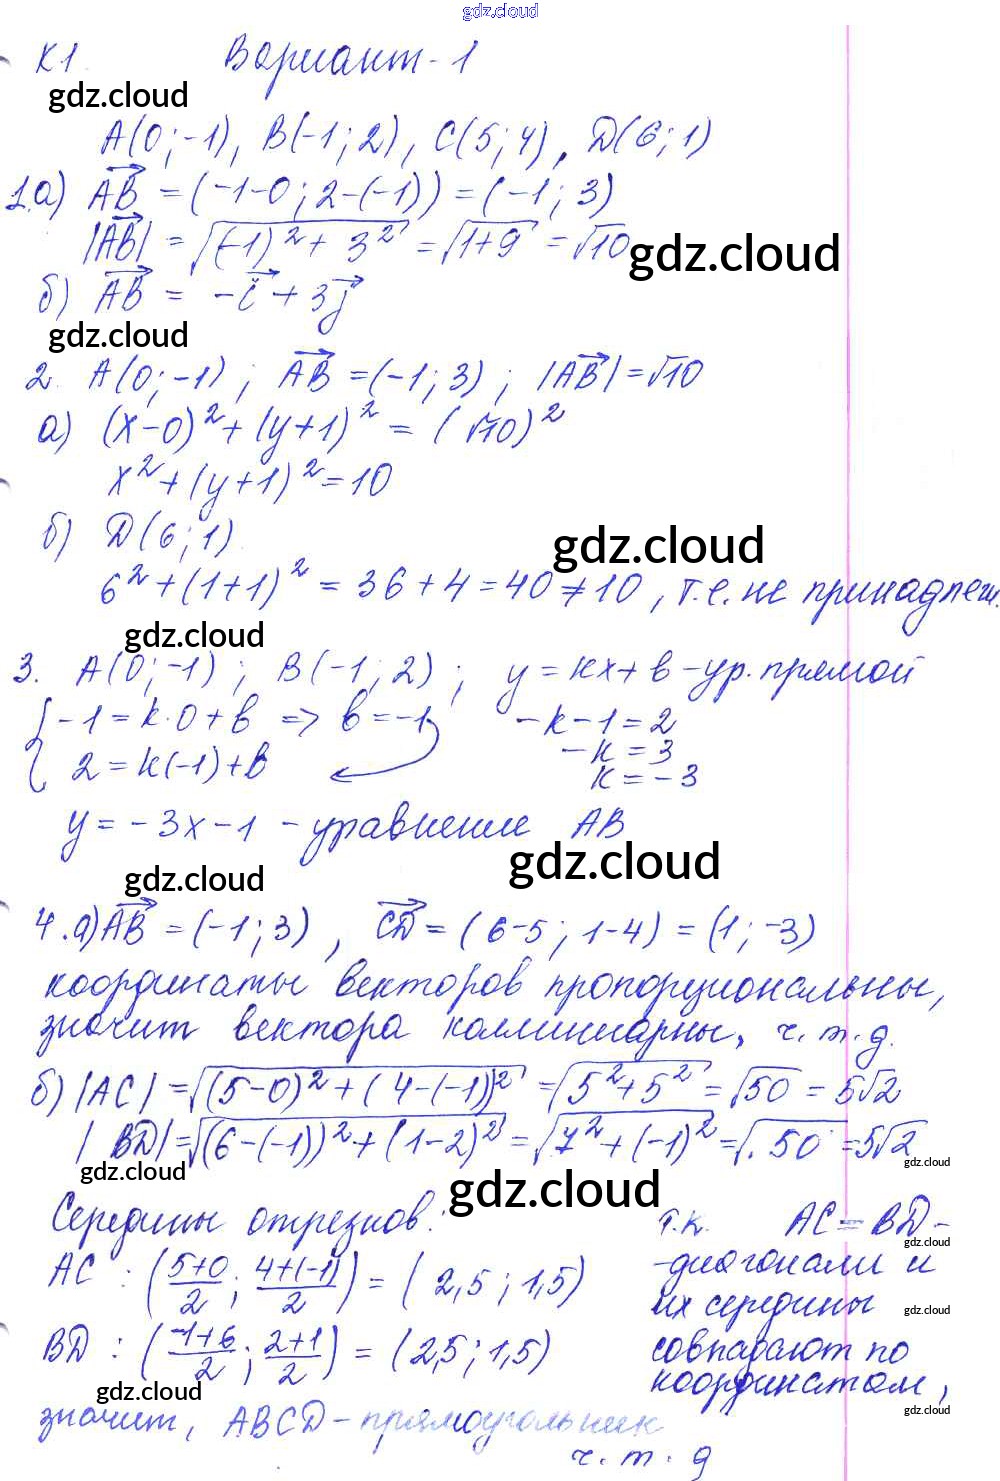 gdz.cloud
К1. Вариант-1
gdz.cloud
A(0;-1), B(-1;2), C(5;4), D(6;1)
1.а) AB = (-1-0; 2-(-1)) = (-1; 3)
|AB| = √((-1)² + 3²) = √(1+9) = √10
gdz.cloud
б) AB = -i + 3j
gdz.cloud
2. A(0;-1); AB = (-1; 3); |AB| = √10
а) (x-0)² + (y+1)² = (√10)²
x² + (y+1)² = 10
б) D(6;1)
gdz.cloud
6² + (1+1)² = 36 + 4 = 40 ≠ 10, т.е. не принадлеж.
gdz.cloud
3. A(0;-1); B(-1;2); y = kx + b - ур. прямой
{ -1 = k·0 + b => b = -1 -k-1 = 2
2 = k(-1) + b -k = 3
k = -3
y = -3x-1 - уравнение AB
gdz.cloud
gdz.cloud
4. а) AB = (-1; 3), CD = (6-5; 1-4) = (1; -3)
координаты векторов пропорциональны,
значит вектора коллинеарны, ч.т.д.
б) |AC| = √((5-0)² + (4-(-1))²) = √(5²+5²) = √50 = 5√2
|BD| = √((6-(-1))² + (1-2)²) = √(7²+(-1)²) = √50 = 5√2
gdz.cloud
gdz.cloud
gdz.cloud
Середины отрезков: т.к. AC = BD-
gdz.cloud
AC : ((5+0)/2; (4+(-1))/2) = (2,5; 1,5) -диагонали и
их середины
gdz.cloud
BD : ((-1+6)/2; (2+1)/2) = (2,5; 1,5) совпадают по
gdz.cloud
координатам,
gdz.cloud
gdz.cloud
значит, ABCD - прямоугольник
ч.т.д